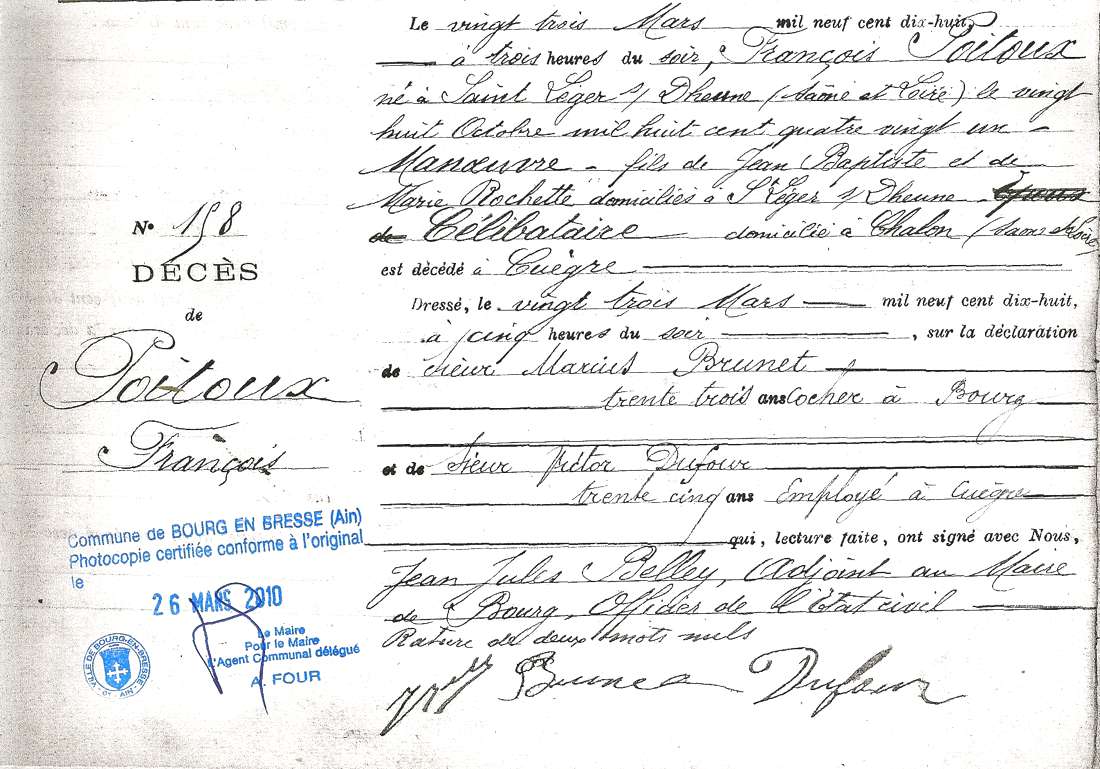 Le vingt trois Mars mil neuf cent dix-huit,
à trois heures du soir, François Poitoux
né à Saint Léger s/ Dheune (Saône et Loire) le vingt
huit Octobre mil huit cent quatre vingt un
Manœuvre - fils de Jean Baptiste et de
Marie Rochette domiciliés à St Léger s/ Dheune
de Célibataire domicilié à Chalon (Saône et Loire)
est décédé à Cuègre
Dressé, le vingt trois Mars mil neuf cent dix-huit,
à cinq heures du soir, sur la déclaration
de Sieur Marius Brunet
trente trois ans Cocher à Bourg
et de Sieur Victor Dufour
trente cinq ans Employé à Cuègre
qui, lecture faite, ont signé avec Nous,
Jean Jules Belley, Adjoint au Maire
de Bourg, Officier de l'État civil
Rature de deux mots nuls
Brunet Dufour
N° 158
DÉCÈS
de
Poitoux
François
Commune de BOURG EN BRESSE (Ain)
Photocopie certifiée conforme à l'original
le
26 MARS 2010
Le Maire
Pour le Maire
L'Agent Communal délégué
A. FOUR
VILLE DE BOURG-EN-BRESSE
01 AIN